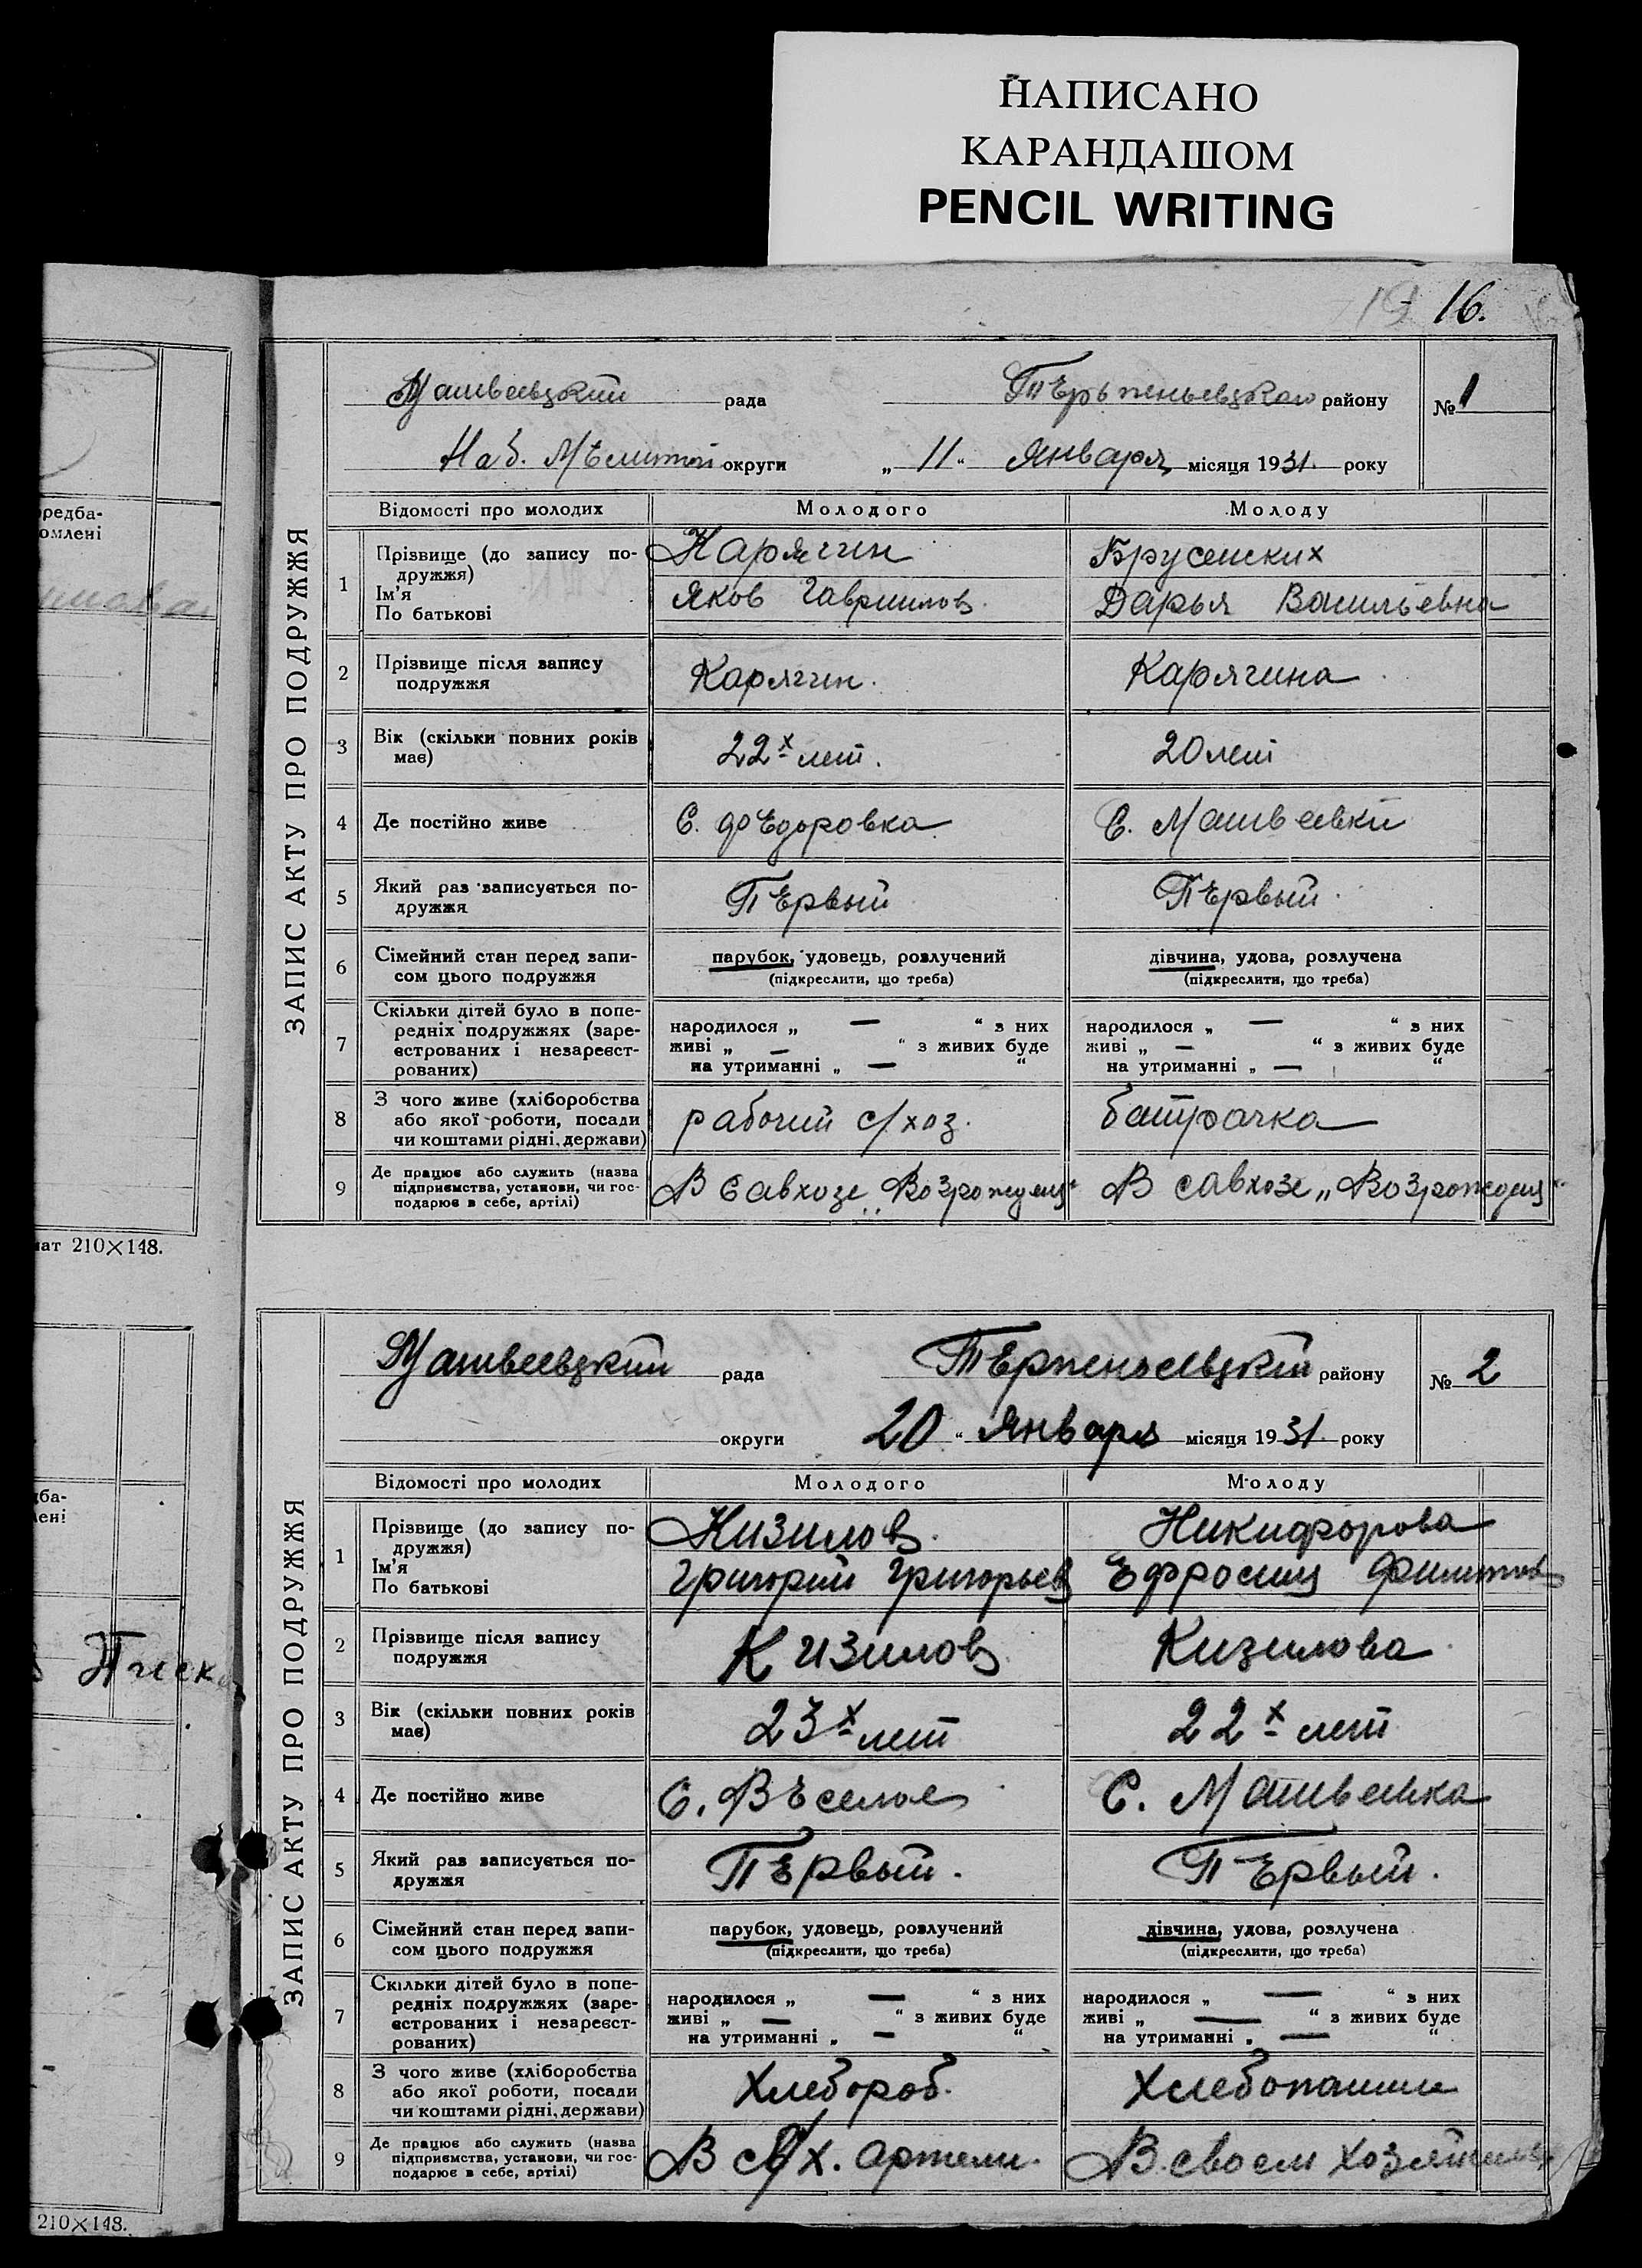 НАПИСАНО
КАРАНДАШОМ
PENCIL WRITING
16.
Матвеевцкий рада Терпеньевцкого району № 1
Наб. Мелитоп округи „ 11 “ Января місяця 1931. року
ЗАПИС АКТУ ПРО ПОДРУЖЖЯ
Відомості про молодих Молодого Молоду
1 Прізвище (до запису по-дружжя) Карягин Брусенских
Ім'я
По батькові Яков Гаврилов. Дарья Васильевна
2 Прізвище після запису подружжя Карягин. Карягина
3 Вік (скільки повних років має) 22х лет. 20 лет
4 Де постійно живе С. Федоровка С. Матвеевки
5 Який раз записується по-дружжя Первый Первый.
6 Сімейний стан перед запи-сом цього подружжя парубок, удовець, розлучений дівчина, удова, розлучена
(підкреслити, що треба) (підкреслити, що треба)
7 Скільки дітей було в попе-редніх подружжях (заре-єстрованих і незареєст-рованих)
народилося „ — “ з них народилося „ — “ з них
живі „ — “ з живих буде живі „ — “ з живих буде
на утриманні „ — “ на утриманні „ — “
8 З чого живе (хліборобства або якої роботи, посади чи коштами рідні, держави) рабочий с/хоз. батрачка
9 Де працює або служить (назва підприємства, установи, чи гос-подарює в себе, артілі) В Савхозе „Возрождения“ В савхозе „Возрождения“
Матвеевцкий рада Терпеньевцкий району № 2
округи 20 “ Января місяця 1931. року
ЗАПИС АКТУ ПРО ПОДРУЖЖЯ
Відомості про молодих Молодого Молоду
1 Прізвище (до запису по-дружжя) Кизилов. Никифорова
Ім'я
По батькові Григорий Григорьев Ефросиния
2 Прізвище після запису подружжя Кизилов Кизилова
3 Вік (скільки повних років має) 23х лет 22х лет
4 Де постійно живе С. Веселое С. Матвеевка
5 Який раз записується по-дружжя Первый. Первый.
6 Сімейний стан перед запи-сом цього подружжя парубок, удовець, розлучений дівчина, удова, розлучена
(підкреслити, що треба) (підкреслити, що треба)
7 Скільки дітей було в попе-редніх подружжях (заре-єстрованих і незареєст-рованих)
народилося „ — “ з них народилося „ — “ з них
живі „ — “ з живих буде живі „ — “ з живих буде
на утриманні „ — “ на утриманні „ — “
8 З чого живе (хліборобства або якої роботи, посади чи коштами рідні, держави) Хлебороб. Хлебопашец
9 Де працює або служить (назва підприємства, установи, чи гос-подарює в себе, артілі) В с/х. артели. В своем хозяйстве
редба-
омлені
мат 210×148.
дба-
лені
210×148.